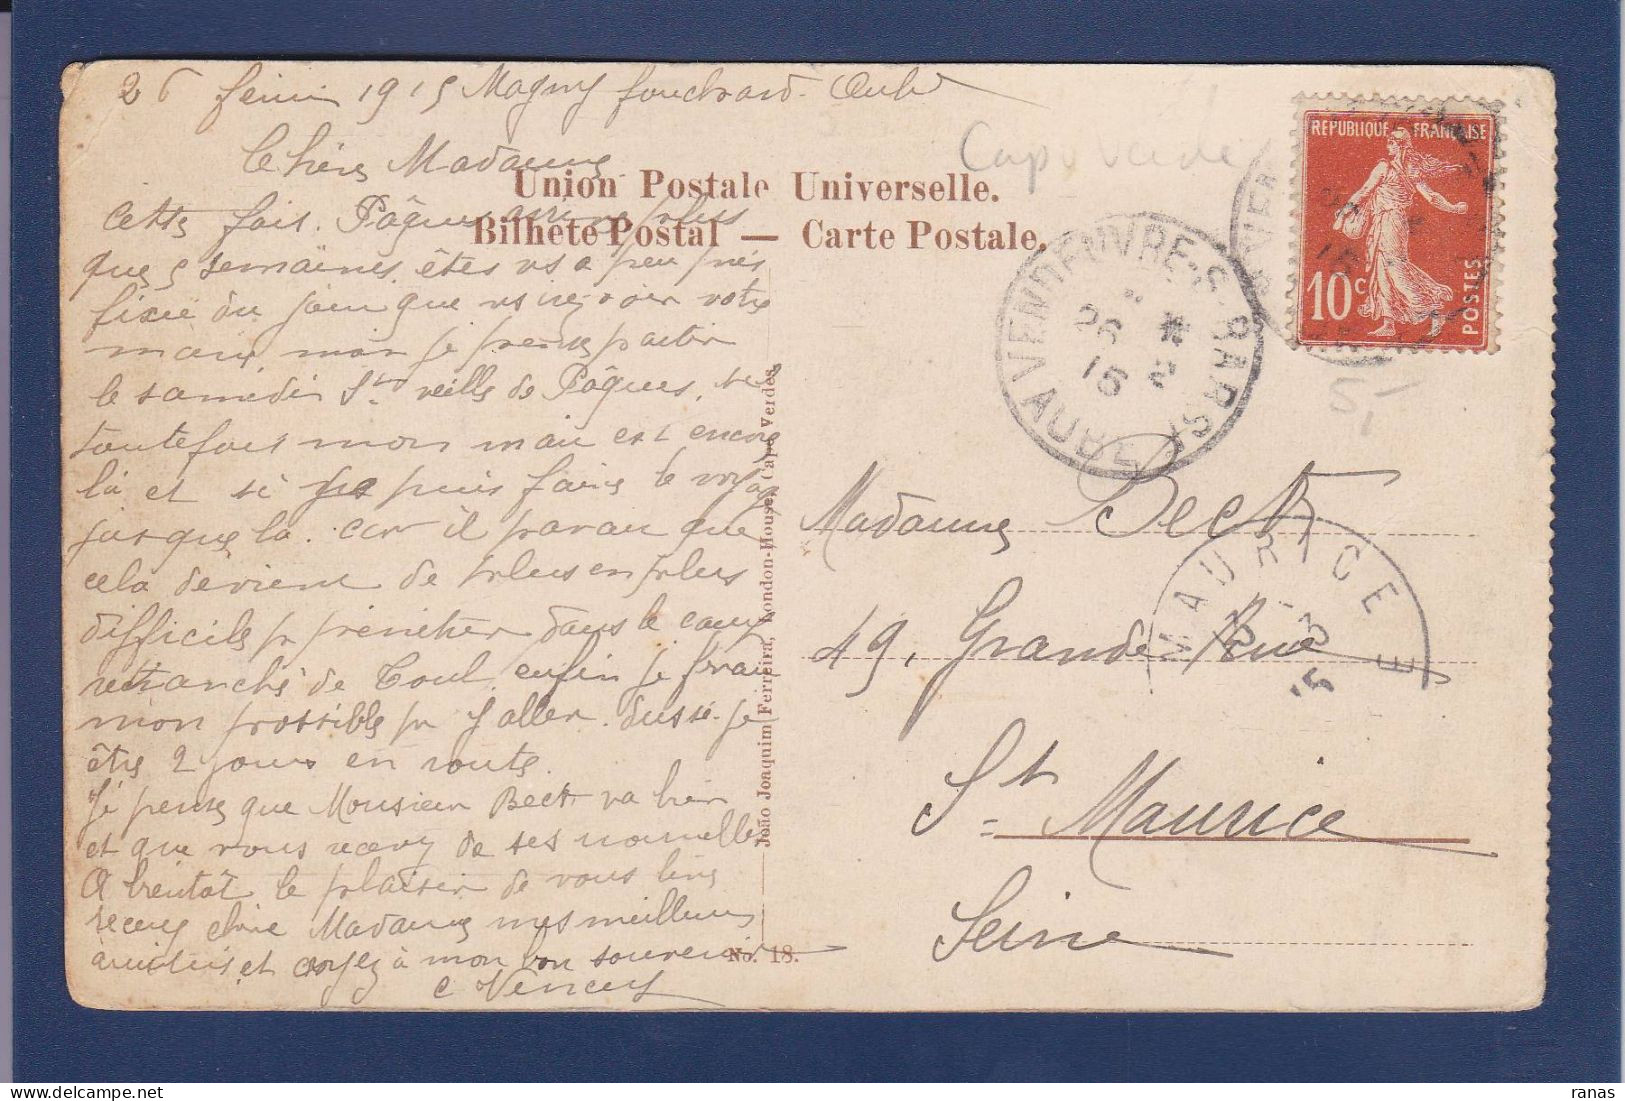 26 fevrier 1915 Magny fouchard. Aube
Capo Verde
Chère Madame
Union Postale Universelle.
Bilhete Postal — Carte Postale.
cette fois. Pâques arrive plus
que 5 semaines. êtes vs a peu près
fixée du jour que vs irez voir votre
mari, moi je pense partir
le samedi St veille de Pâques, si
toutefois mon mari est encore
là et si je puis faire le voyage
jusque la. car il parait que
cela devient de plus en plus
difficile pr pénétrer dans le camp
retranché de Toul. enfin je ferai
mon possible pr y aller. dussé-je
être 2 jours en route.
Je pense que Monsieur Beck va bien
et que vous recevez de ses nouvelles
A bientôt le plaisir de vous lire
recevez chère Madame mes meilleures
amitiés. et croyez à mon bon souvenir
João Joaquim Ferreira, London-House, Capo Verdes
No. 18.
REPUBLIQUE FRANÇAISE
10c
POSTES
VENDEUVRE-S-BARSE
AUBE
26 2
15
51
Madame Beck
49, Grande Rue
St Maurice
Seine
MAURICE
15
ranas